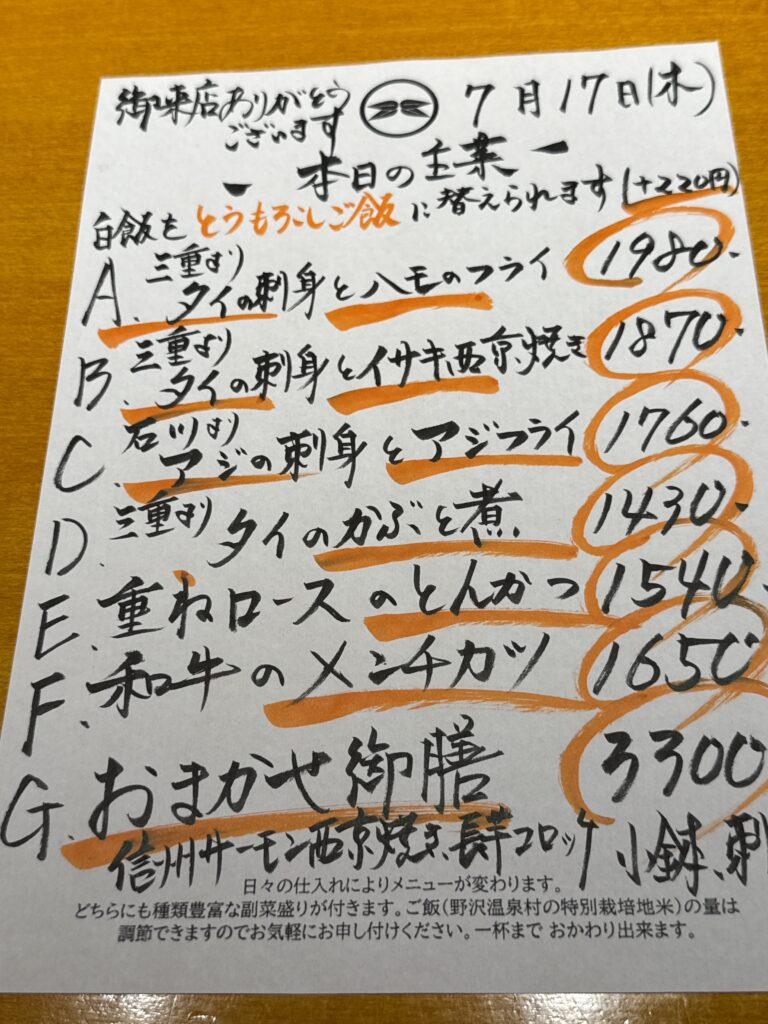 御来店ありがとう
ございます
7月17日(木)
本日の主菜
白飯をとうもろこしご飯に替えられます(+220円)
A. 三重より タイの刺身とハモのフライ 1980.
B. 三重より タイの刺身とイサキ西京焼き 1870.
C. 石川より アジの刺身とアジフライ 1760.
D. 三重より タイのかぶと煮 1430.
E. 重ねロースのとんかつ 1540.
F. 和牛のメンチカツ 1650
G. おまかせ御膳 3300
信州サーモン西京焼き、長芋コロッケ 小鉢、刺
日々の仕入れによりメニューが変わります。
どちらにも種類豊富な副菜盛りが付きます。ご飯(野沢温泉村の特別栽培地米)の量は
調節できますのでお気軽にお申し付けください。一杯まで おかわり出来ます。